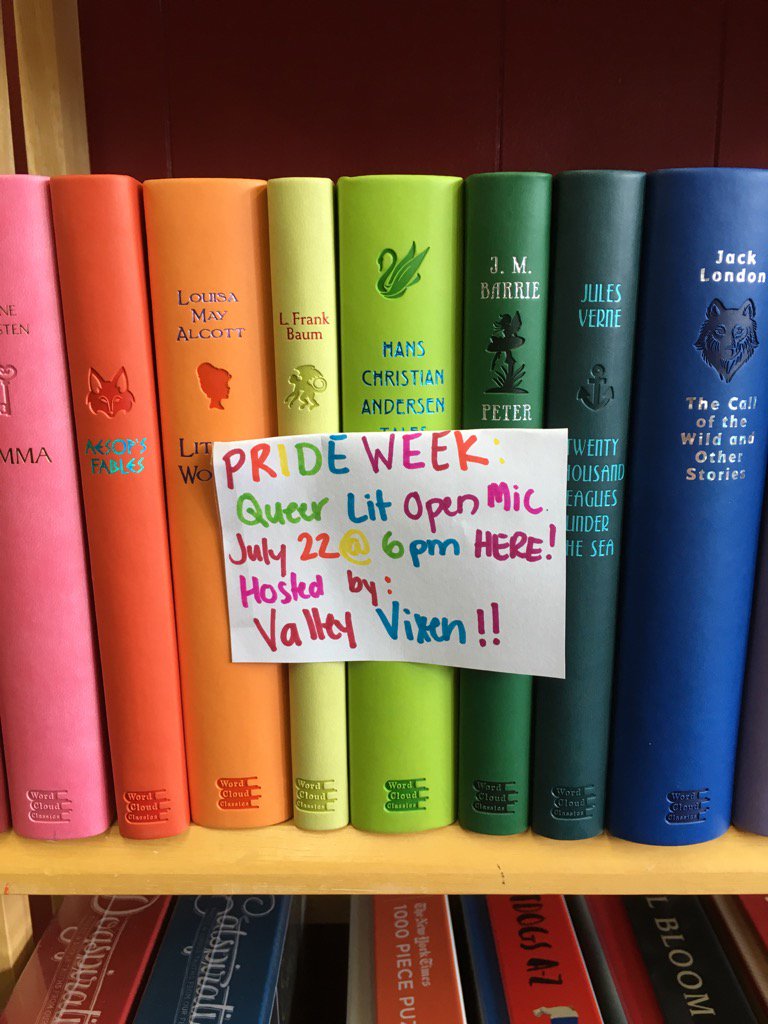 MMA
AESOP'S
FABLES
Word
Cloud
Classics
LOUISA
MAY
ALCOTT
L. Frank
Baum
HANS
CHRISTIAN
ANDERSEN
TALES
J. M.
BARRIE
PETER
JULES
VERNE
TWENTY
THOUSAND
LEAGUES
UNDER
THE SEA
Jack
London
The Call
of the
Wild and
Other
Stories
PRIDE WEEK:
Queer Lit Open Mic.
July 22 @ 6pm HERE!
Hosted by:
Valley Vixen!!
Word
Cloud
Classics
Word
Cloud
Classics
Word
Cloud
Classics
Word
Cloud
Classics
Word
Cloud
Classics
Word
Cloud
Classics
Word
Cloud
Classics
The New York Times
1000 PIECE PUZ
DOGS A-Z
BLOOM